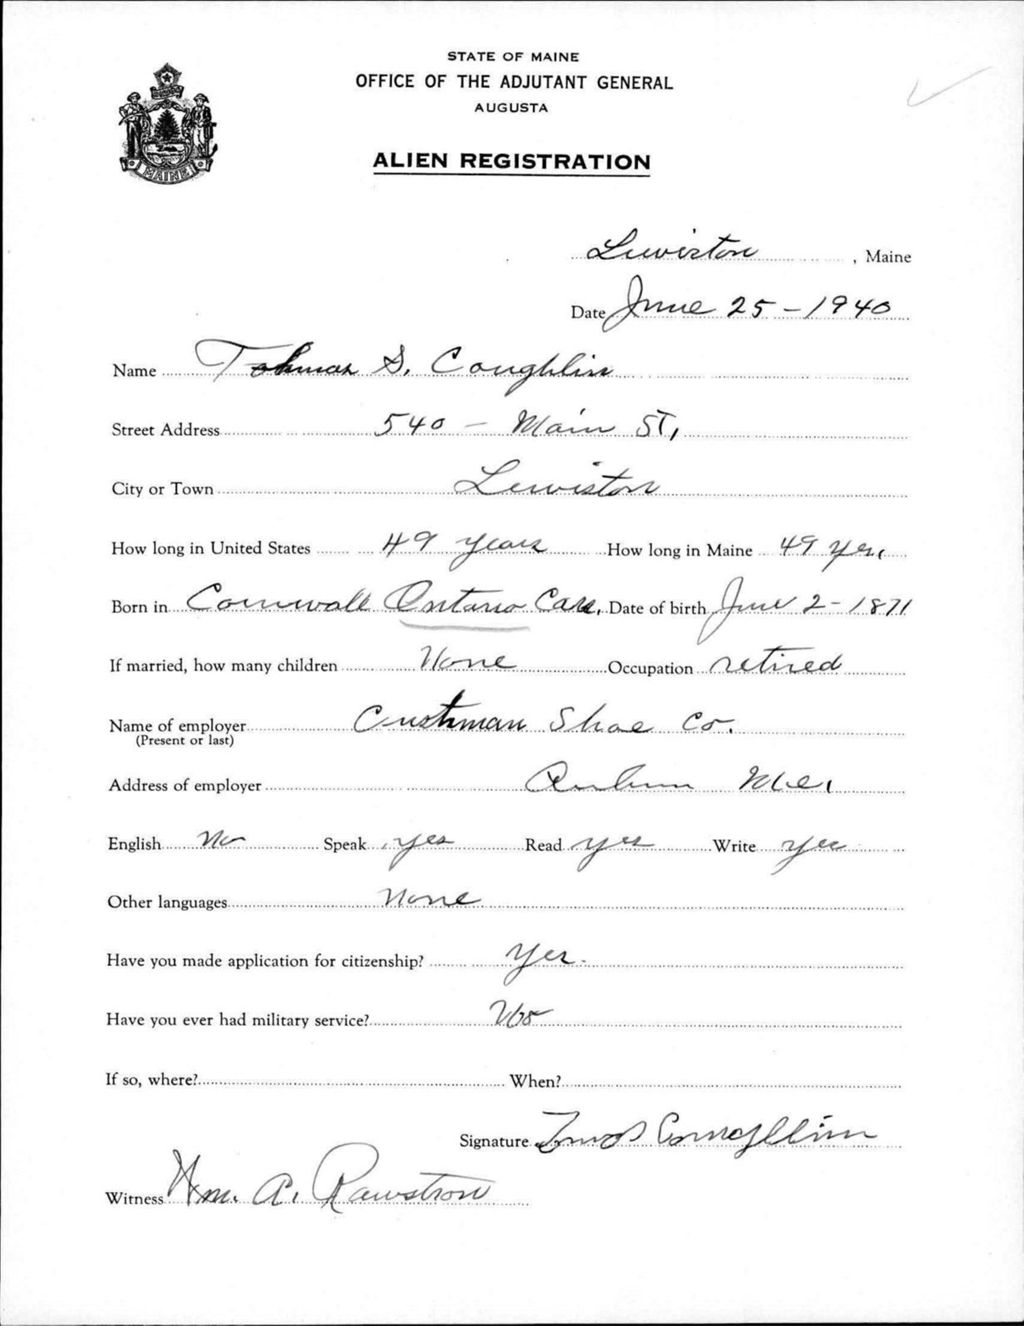 STATE OF MAINE
OFFICE OF THE ADJUTANT GENERAL
AUGUSTA
MAINE
ALIEN REGISTRATION
Lewiston, Maine
Date June 25-1940
Name S. Coughlin
Street Address 540 - Main St,
City or Town Lewiston
How long in United States 49 years How long in Maine 49 yrs
Born in Cornwall Ontario Can, Date of birth June 2-1871
If married, how many children None Occupation retired
Name of employer Cushman Shoe Co.
(Present or last)
Address of employer Auburn Me,
English No Speak yes Read yes Write yes
Other languages None
Have you made application for citizenship? Yes.
Have you ever had military service? No
If so, where? When?
Signature Coughlin
Witness Wm. A. Rawstron